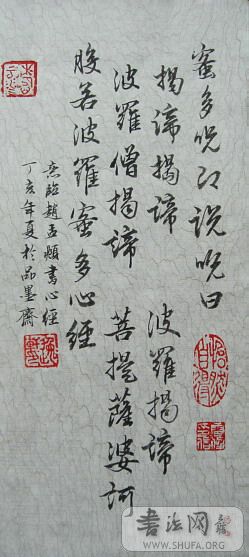 蜜多咒即说咒曰
揭谛揭谛 波羅揭谛
波羅僧揭谛 菩提薩婆訶
般若波羅蜜多心經
意臨趙孟頫書心經
丁亥年夏於品墨齋
书法网
WWW.SHUFA.ORG